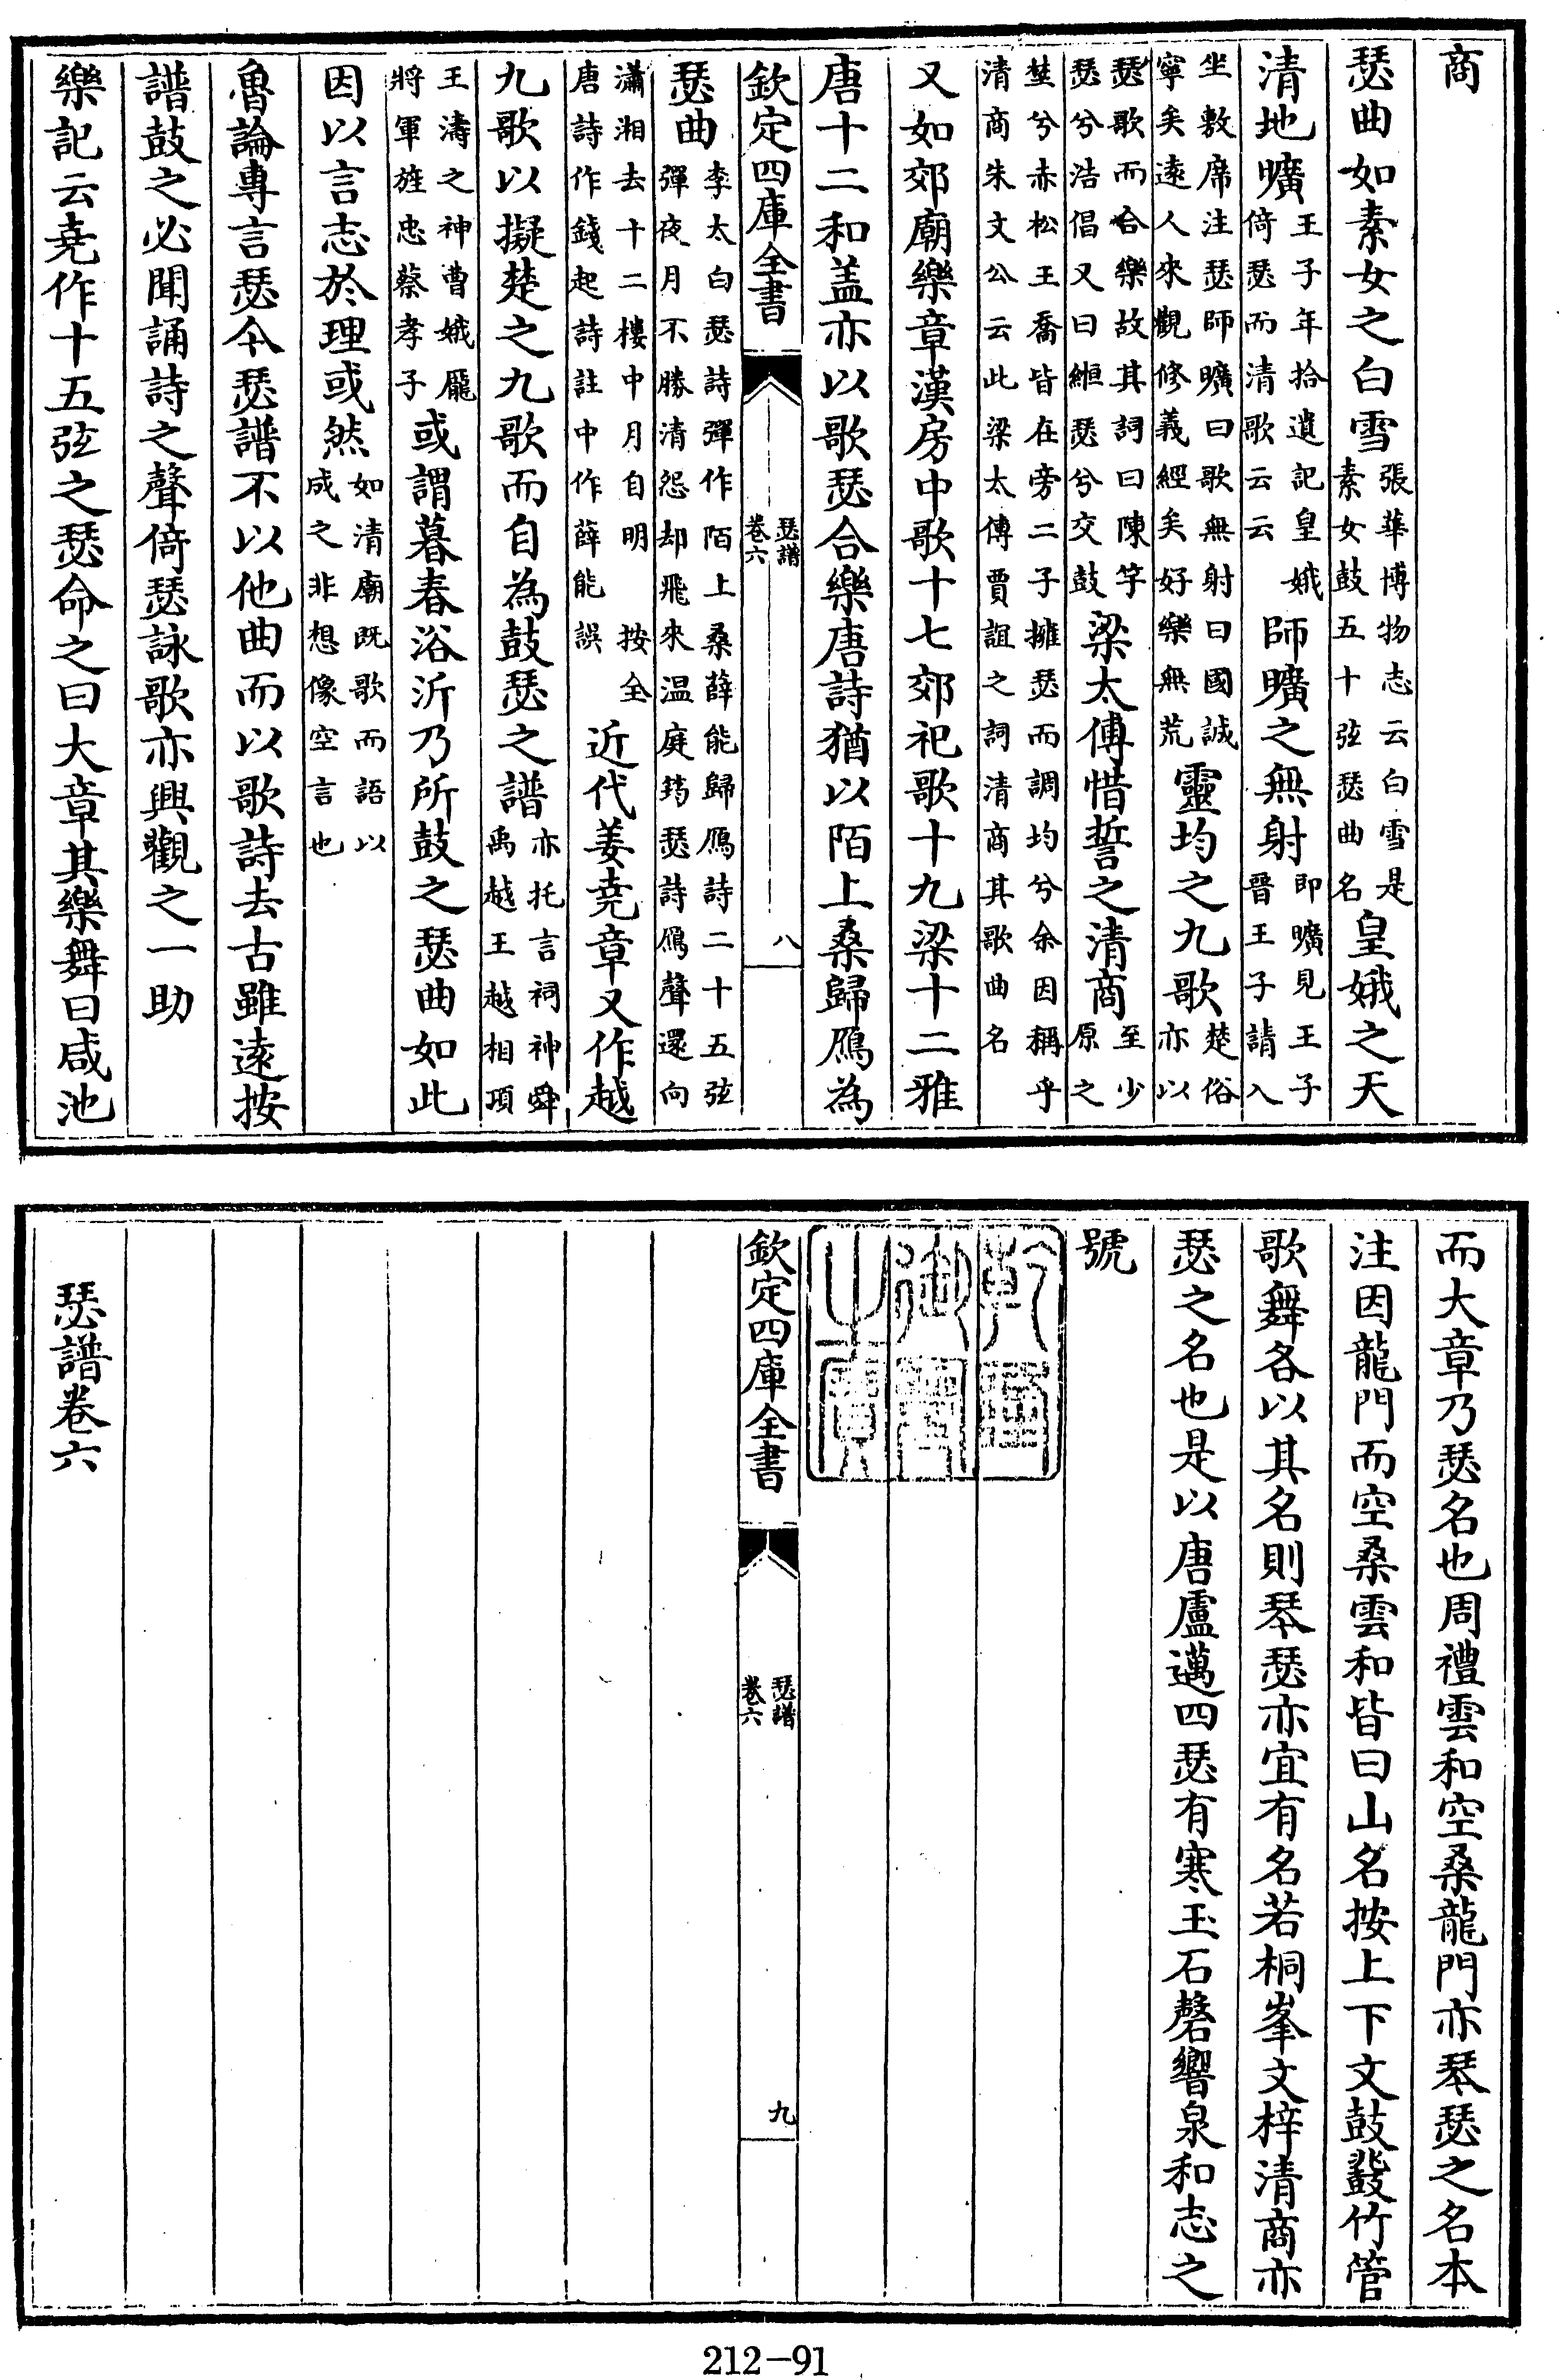 商
瑟曲如素女之白雪張華博物志云白雪是素女鼓五十弦瑟曲名皇娥之天
清地曠王子年拾遺記皇娥倚瑟而清歌云云師曠之無射即曠見王子晉王子請入
坐敷席注瑟師曠曰歌無射曰國誠寧矣遠人來觀修義經矣好樂無荒靈均之九歌楚俗亦以
瑟歌而合樂故其詞曰陳竽瑟兮浩倡又曰縆瑟兮交鼓梁太傅惜誓之清商至少原之
埜兮赤松王喬皆在旁二子擁瑟而調均兮余因稱乎清商朱文公云此梁太傅賈誼之詞清商其歌曲名
又如郊廟樂章漢房中歌十七郊祀歌十九梁十二雅
唐十二和盖亦以歌瑟合樂唐詩猶以陌上桑歸鴈為
欽定四庫全書 瑟譜 卷六 八
瑟曲李太白瑟詩彈作陌上桑薛能歸鴈詩二十五弦彈夜月不勝清怨却飛來温庭筠瑟詩鴈聲還向
瀟湘去十二樓中月自明 按全唐詩作錢起詩註中作薛能誤近代姜堯章又作越
九歌以擬楚之九歌而自為鼓瑟之譜亦托言祠神舜禹越王越相項
王濤之神曹娥龎將軍旌忠蔡孝子或謂暮春浴沂乃所鼓之瑟曲如此
因以言志於理或然如清廟既歌而語以成之非想像空言也
魯論專言瑟今瑟譜不以他曲而以歌詩去古雖遠按
譜鼓之必聞誦詩之聲倚瑟詠歌亦興觀之一助
樂記云堯作十五弦之瑟命之曰大章其樂舞曰咸池
而大章乃瑟名也周禮雲和空桑龍門亦琴瑟之名本
注因龍門而空桑雲和皆曰山名按上下文鼓鼗竹管
歌舞各以其名則琴瑟亦宜有名若桐峯文梓清商亦
瑟之名也是以唐盧邁四瑟有寒玉石磬響泉和志之
號
乾隆御覽之寶
欽定四庫全書 瑟譜 卷六 九
瑟譜卷六
212-91